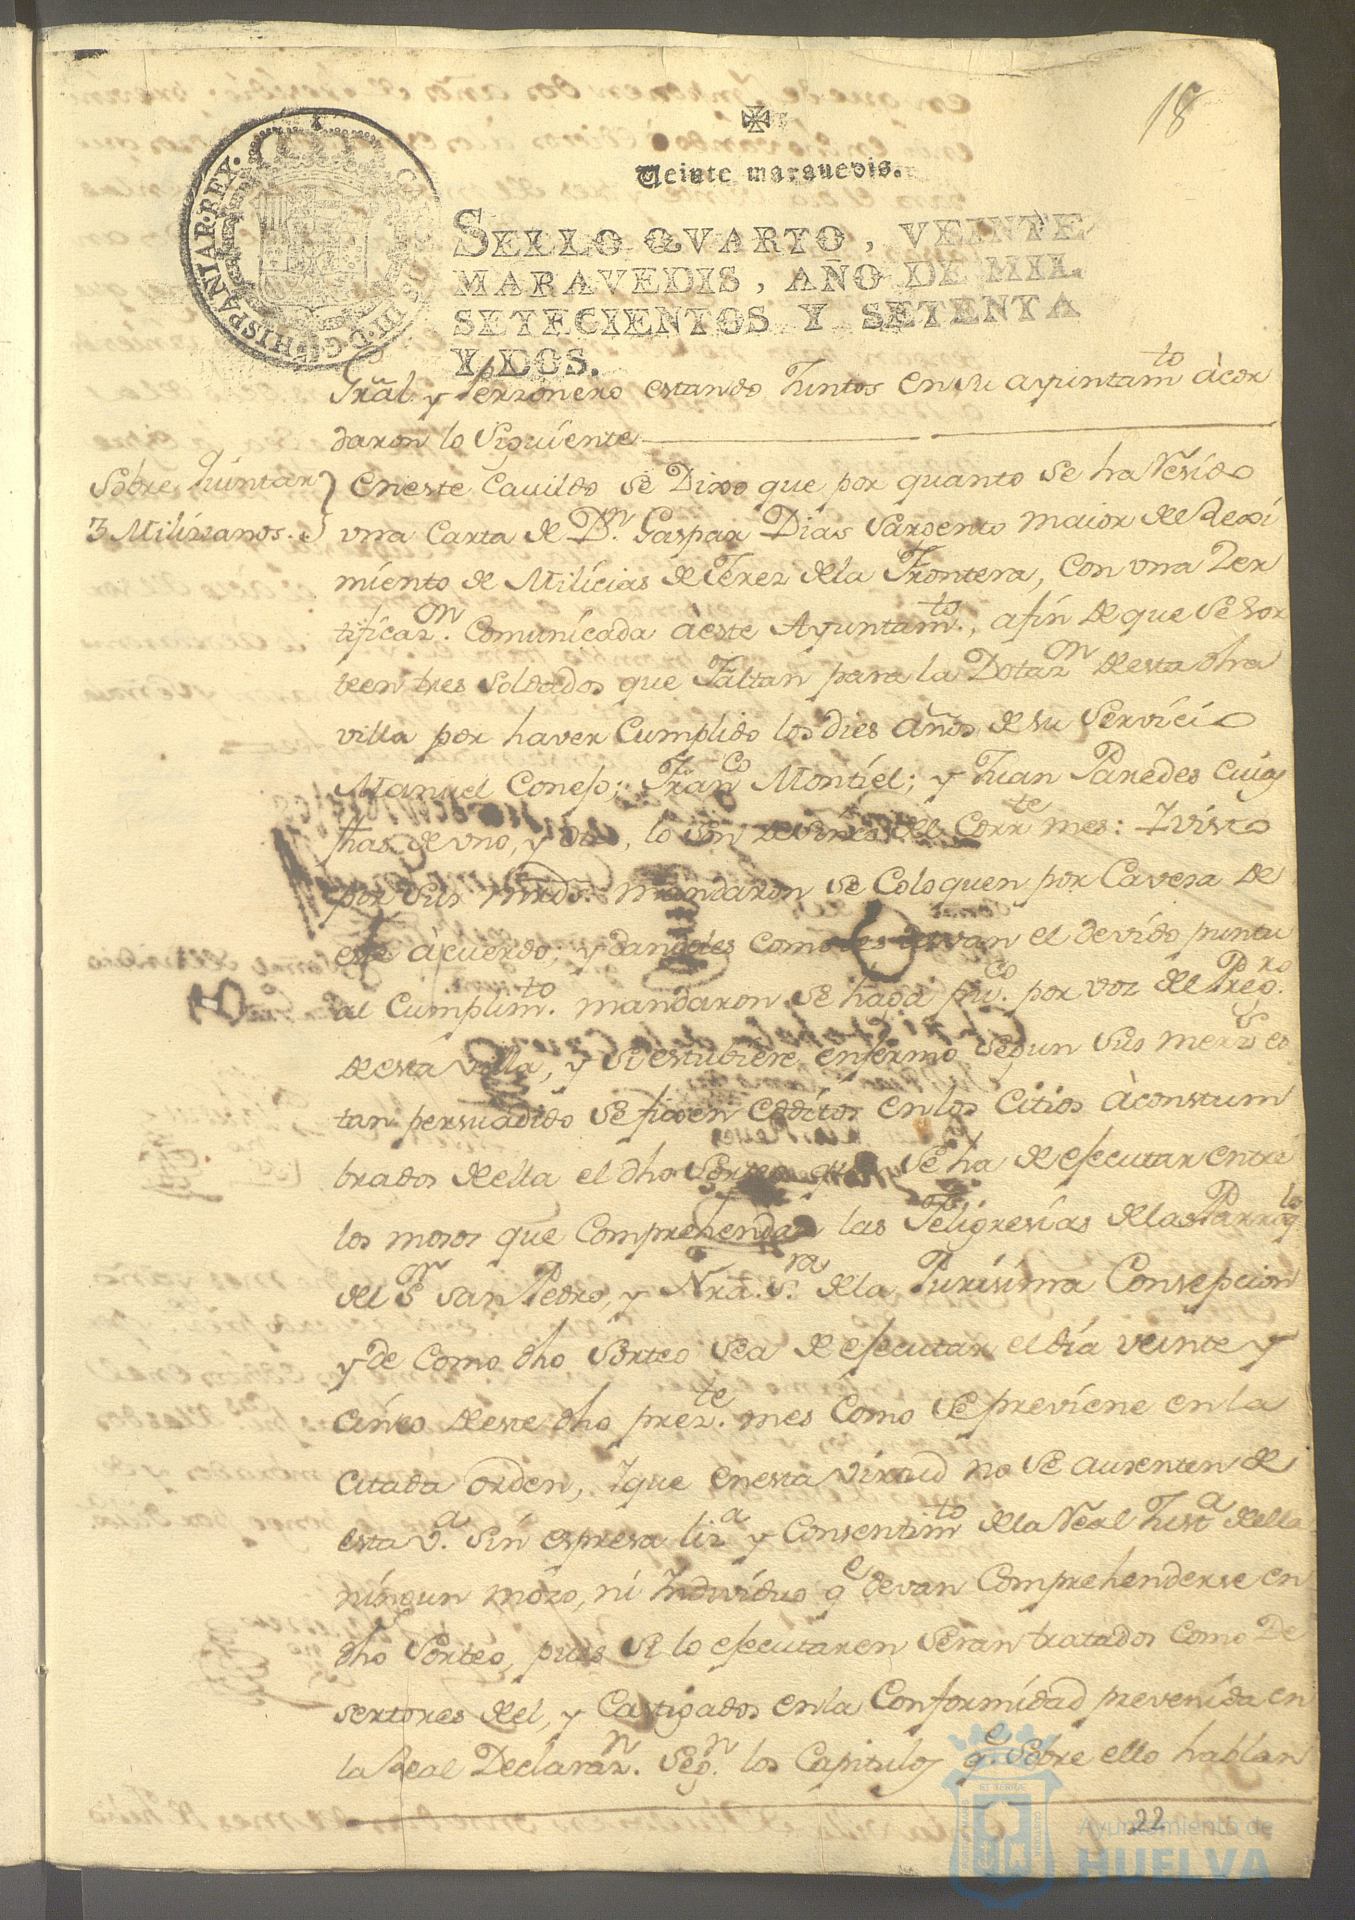 18
Veinte maravedis.
SELLO QVARTO, VEINTE
MARAVEDIS, AÑO DE MIL
SETECIENTOS Y SETENTA
Y DOS.
HISPANIAR·REX·
Grãl. y Perzonero estando Juntos en su ayuntamto. àcor
daron lo Siguiente
Sobre quintar
3 Milizianos.
En este Cavildo se Dixo que por quanto se ha Resivido
una Carta de Dn. Gaspar Dias Sargento maior de Rexi
miento de Milicias de Jerez de la Frontera, con una Zer
tificazon. Comunicada à este Ayuntamto., afin de que Se Sor
teen tres Soldados que Faltan para la Dotazon de esta dha
villa por haver Cumplido los dies años de su Servicio
Manuel Coneso; Franco Montiel; y Juan Paredes cuias
fhas de uno, y otro, lo son de Sinco del Corrte mes: Y visto
por Sus mrds. mandaron se Coloquen por Cavesa de
este àcuerdo; y dandoles como les devan el devido puntu
al Cumplimto. mandaron se haga puco. por voz del Pregro.
de esta villa, y si estubiere enfermo segun Sus merzs es
tan persuadido se fixen Edictos en los Citios àconstum
brados de ella el dho Sorteo que Se ha de efecutar entre
los mosos que Comprehendan las Feligresias de las Parroqs
del Sr. San Pedro, y Nrã. Sra. de la Purisima Consepcion
y de como dho Sorteo sea de efecutar el dia veinte y
cinco de este dho prezte. mes Como se previene en la
citada orden, Y que en esta virtud no se ausenten de
esta Va. sin espresa liza y Consentimto de la Real Justa de ella
ningun mozo, ni Individuo qe devan Comprehenderse en
dho Sorteo, pues Si lo efecutaren Seran tratados Como De
sertores de el, y Castigados en la Conformidad prevenida en
la Real Declarazn. Segn. los Capitulos qe. Sobre ello hablan
22
Ayuntamiento de
HUELVA